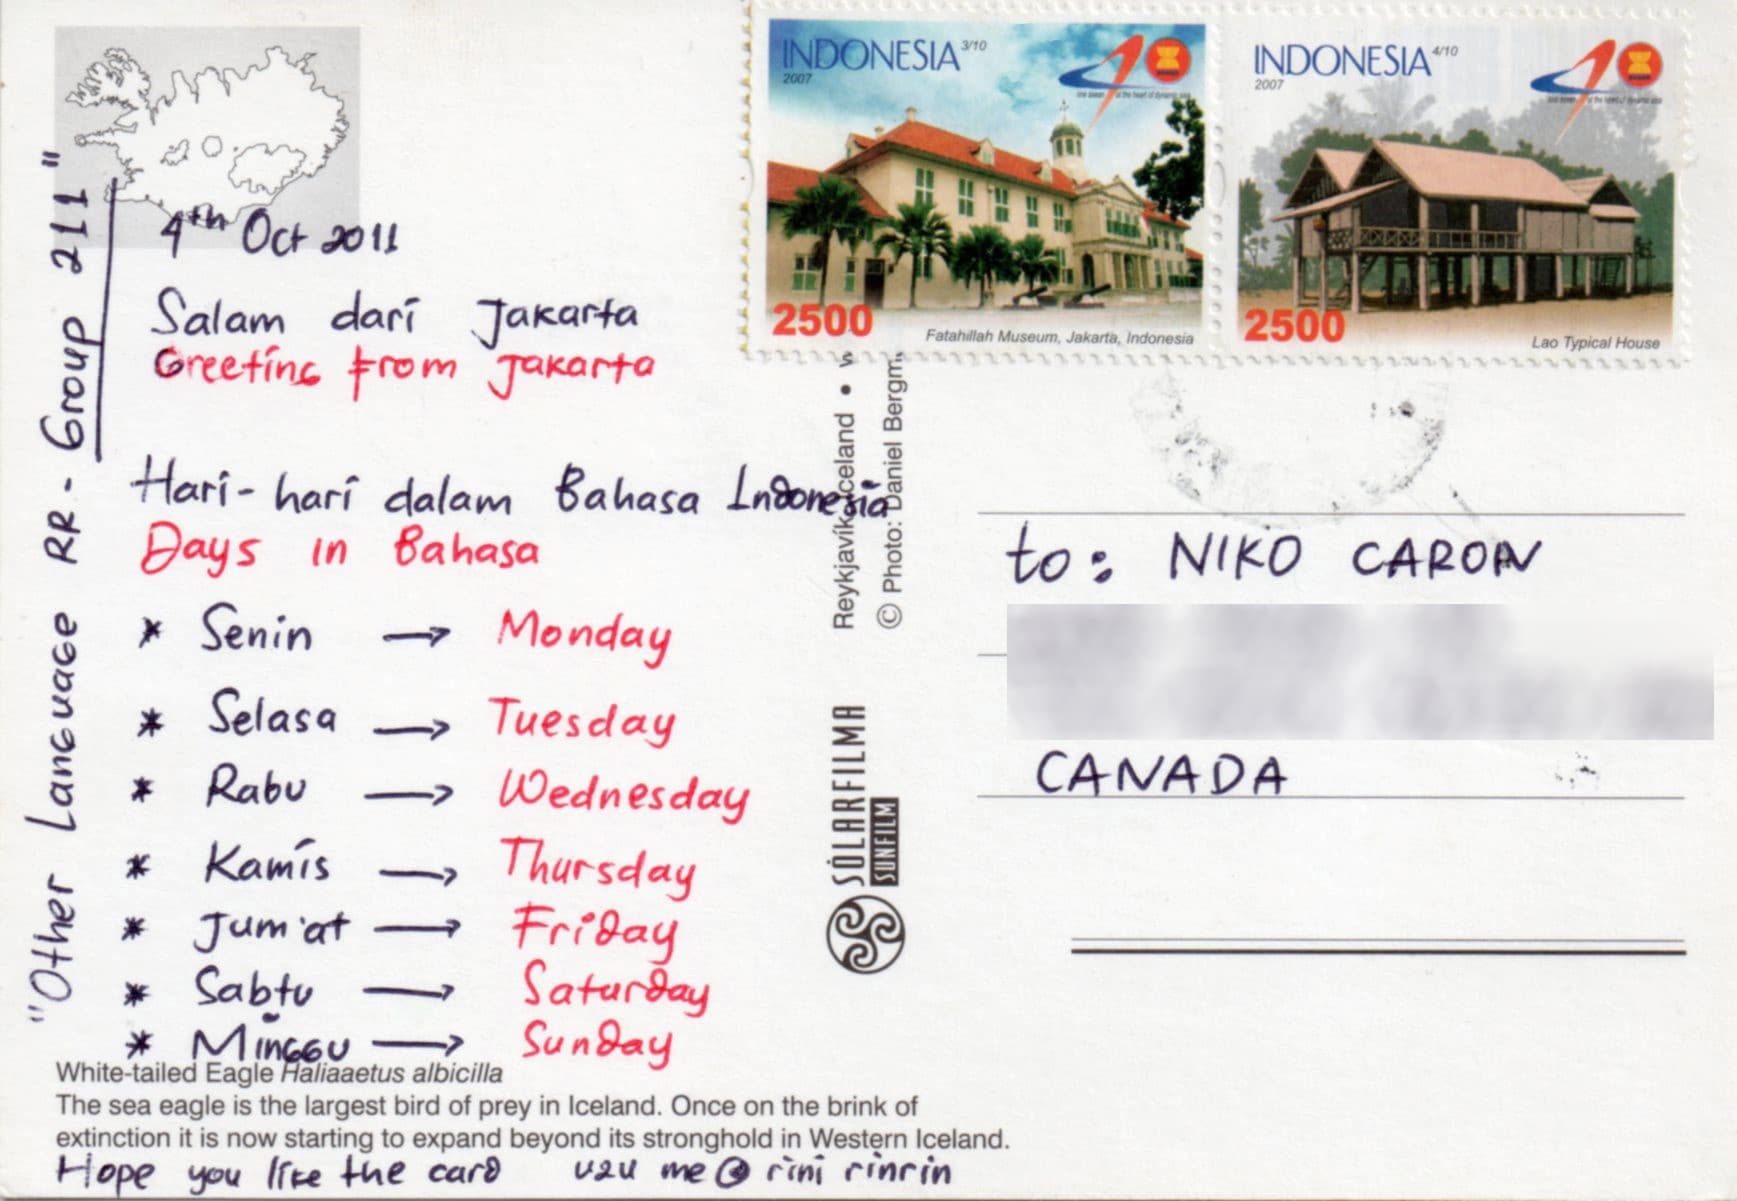 "Other Language RR - Group 211"
4th Oct 2011
Salam dari Jakarta
Greeting from Jakarta
Hari-hari dalam Bahasa Indonesia
Days in Bahasa
* Senin → Monday
* Selasa → Tuesday
* Rabu → Wednesday
* Kamis → Thursday
* Jum'at → Friday
* Sabtu → Saturday
* Minggu → Sunday
White-tailed Eagle Haliaaetus albicilla
The sea eagle is the largest bird of prey in Iceland. Once on the brink of
extinction it is now starting to expand beyond its stronghold in Western Iceland.
Hope you like the card u2u me @ rini rinrin
SÓLARFILMA
SUNFILM
Reykjavík Iceland •
© Photo: Daniel Bergm
INDONESIA 3/10
2007
one asean at the heart of dynamic asia
2500
Fatahillah Museum, Jakarta, Indonesia
INDONESIA 4/10
2007
one asean at the heart of dynamic asia
2500
Lao Typical House
to: NIKO CARON
CANADA